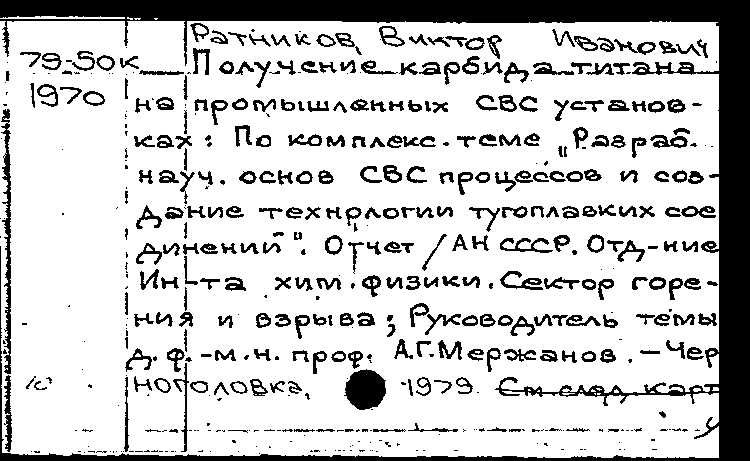 Ратников, Виктор Иванович
79-50к Получение карбида титана
1970 на промышленных СВС установ-
ках: По комплекс. теме „Разраб.
науч. основ СВС процессов и соз-
дание технологии тугоплавких сое
динений". Отчет / АН СССР. Отд-ние
Ин-та хим. физики. Сектор горе-
ния и взрыва; Руководитель темы
д. ф.-м.н. проф. А.Г. Мержанов. — Чер
ноголовка, 1979 См след карт
10